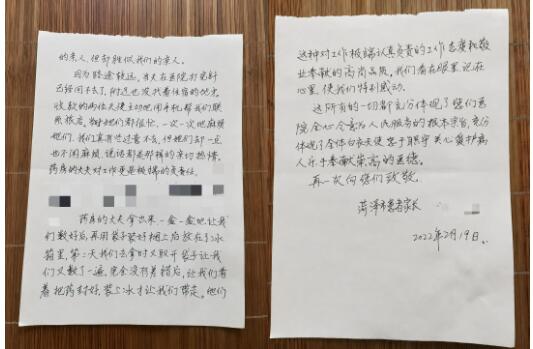 的亲人,但却胜似我们的亲人。
因为路途较远,当天在医院打完针
已经回不去了,附近也没找着住宿的地方,
收款的两位大夫主动地用手机帮我们联
系旅店,她们都很忙,一次一次地麻烦
她们,我们真有些过意不去,但她们却一点
也不闲麻烦,说话都是那样的亲切热情。
药房的大夫对工作更是极端的负责任。
药房的大夫拿出来一盒一盒地让我
们数好后,再用袋子装好捆上后放在了冰
箱里,第二天我们去拿时又取开袋子让我
们又数了一遍,完全没有差错后,让我们看
着把药封好,装上冰才让我们带走。他们
这种对工作极端认真负责的工作态度和敬
业奉献的高尚品质,我们看在眼里记在
心里,使我们特别感动。
这所有的一切都充分体现了您们医
院全心全意为人民服务的根本宗旨,充分
体现了全体白衣天使忠于职守关心爱护病
人乐于奉献崇高的医德。
再一次向您们致敬。
菏泽市患者家长
2022年2月19日.